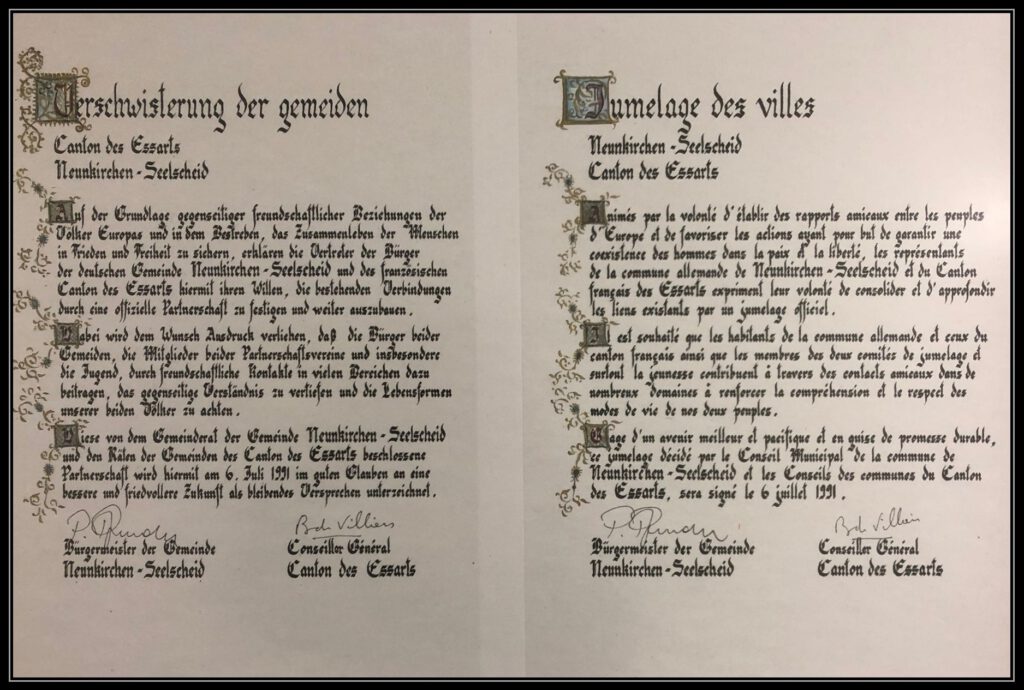 Verschwisterung der gemeiden
Canton des Essarts
Neunkirchen - Seelscheid
Auf der Grundlage gegenseitiger freundschaftlicher Beziehungen der
Völker Europas und in dem Bestreben, das Zusammenleben der Menschen
in Frieden und Freiheit zu sichern, erklären die Vertreter der Bürger
der deutschen Gemeinde Neunkirchen - Seelscheid und des französischen
Canton des Essarts hiermit ihren Willen, die bestehenden Verbindungen
durch eine offizielle Partnerschaft zu festigen und weiter auszubauen.
Dabei wird dem Wunsch Ausdruck verliehen, daß die Bürger beider
Gemeiden, die Mitglieder beider Partnerschaftsvereine und insbesondere
die Jugend, durch freundschaftliche Kontakte in vielen Bereichen dazu
beitragen, das gegenseitige Verständnis zu vertiefen und die Lebensformen
unserer beiden Völker zu achten.
Diese von dem Gemeinderat der Gemeinde Neunkirchen - Seelscheid
und den Räten der Gemeinden des Canton des Essarts beschlossene
Partnerschaft wird hiermit am 6. Juli 1991 im guten Glauben an eine
bessere und friedvollere Zukunft als bleibendes Versprechen unterzeichnet.
Bürgermeister der Gemeinde
Neunkirchen - Seelscheid
Conseiller Général
Canton des Essarts
Jumelage des villes
Neunkirchen - Seelscheid
Canton des Essarts
Animés par la volonté d'établir des rapports amicaux entre les peuples
d'Europe et de favoriser les actions ayant pour but de garantir une
coexistence des hommes dans la paix et la liberté, les représentants
de la commune allemande de Neunkirchen - Seelscheid et du Canton
français des Essarts expriment leur volonté de consolider et d'approfondir
les liens existants par un jumelage officiel.
Il est souhaité que les habitants de la commune allemande et ceux du
canton français ainsi que les membres des deux comités de jumelage et
surtout la jeunesse contribuent à travers des contacts amicaux dans de
nombreux domaines à renforcer la compréhension et le respect des
modes de vie de nos deux peuples.
Gage d'un avenir meilleur et pacifique et en guise de promesse durable,
ce jumelage décidé par le Conseil Municipal de la commune de
Neunkirchen - Seelscheid et les Conseils des communes du Canton
des Essarts, sera signé le 6 juillet 1991.
Bürgermeister der Gemeinde
Neunkirchen - Seelscheid
Conseiller Général
Canton des Essarts